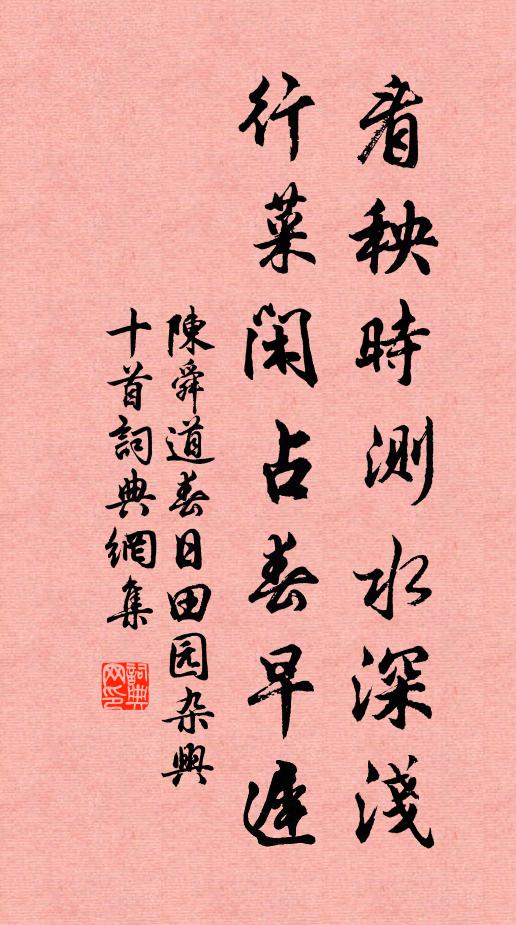 看秧時測水深淺
行菜閑占春早遲
陳舜道春日田园杂興
十首詞典網集
詞典
网印